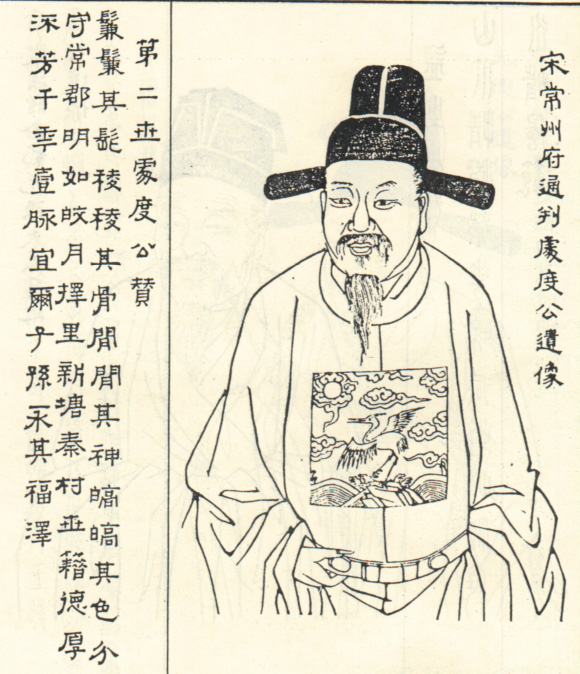 宋常州府通判處度公遺像
第二世處度公贊
鬑鬑其髭稜稜其骨閒閒其神皜皜其色分
守常郡明如皎月擇里新塘秦村世籍德厚
流芳千秊壹脉宜爾子孫永其福澤